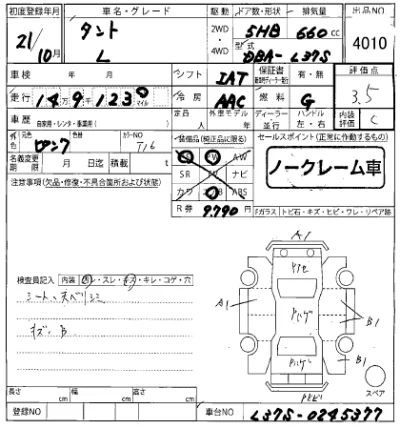 初度登録年月 車名・グレード 駆動 ドア数・形状 排気量 出品NO
21/10月 タント L 2WD・4WD 5HB 660cc 4010
型式 DBA-L375
車検 年 月 シフト IAT 保証書 有・無 評価点
走行 149,123 冷房 AAC 燃料 G 3.5
車歴 自家用・レンタ・事業用( ) 定員 人 外車モデル 年 ディーラー・並行 ハンドル 左・右 内装評価 C
色 元色 カラーNO T16 装備品(純正品に限る) セールスポイント(正常に作動するもの)
名義変更期限 月 日迄 積載 t AW
SR ナビ ノークレーム車
カワ ABS
注意事項(欠品・修復・不具合箇所および状態)
R券 9,790円 Fガラス トビ石・キズ・ヒビ・ワレ・リペア跡
A1
検査員記入 内装 スレ・キズ・キレ・コゲ・穴
シート・天ベリシミ
キズ・B
A1
B1
B1
スペア
長さ cm 幅 cm 高さ cm
登録NO 車台NO L375-0245377